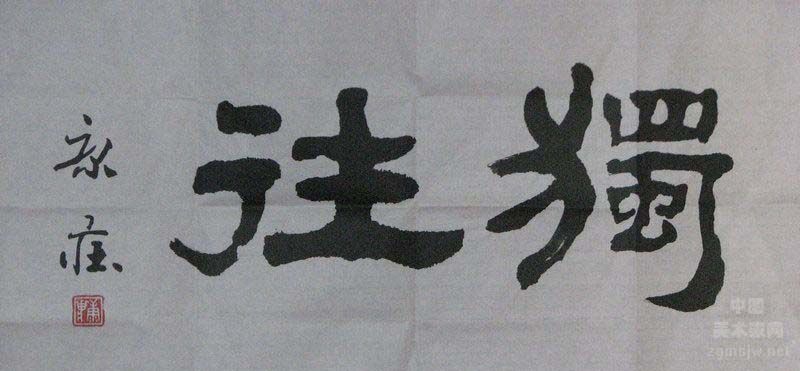 獨往
中国
美术家网
zgmsjw.net